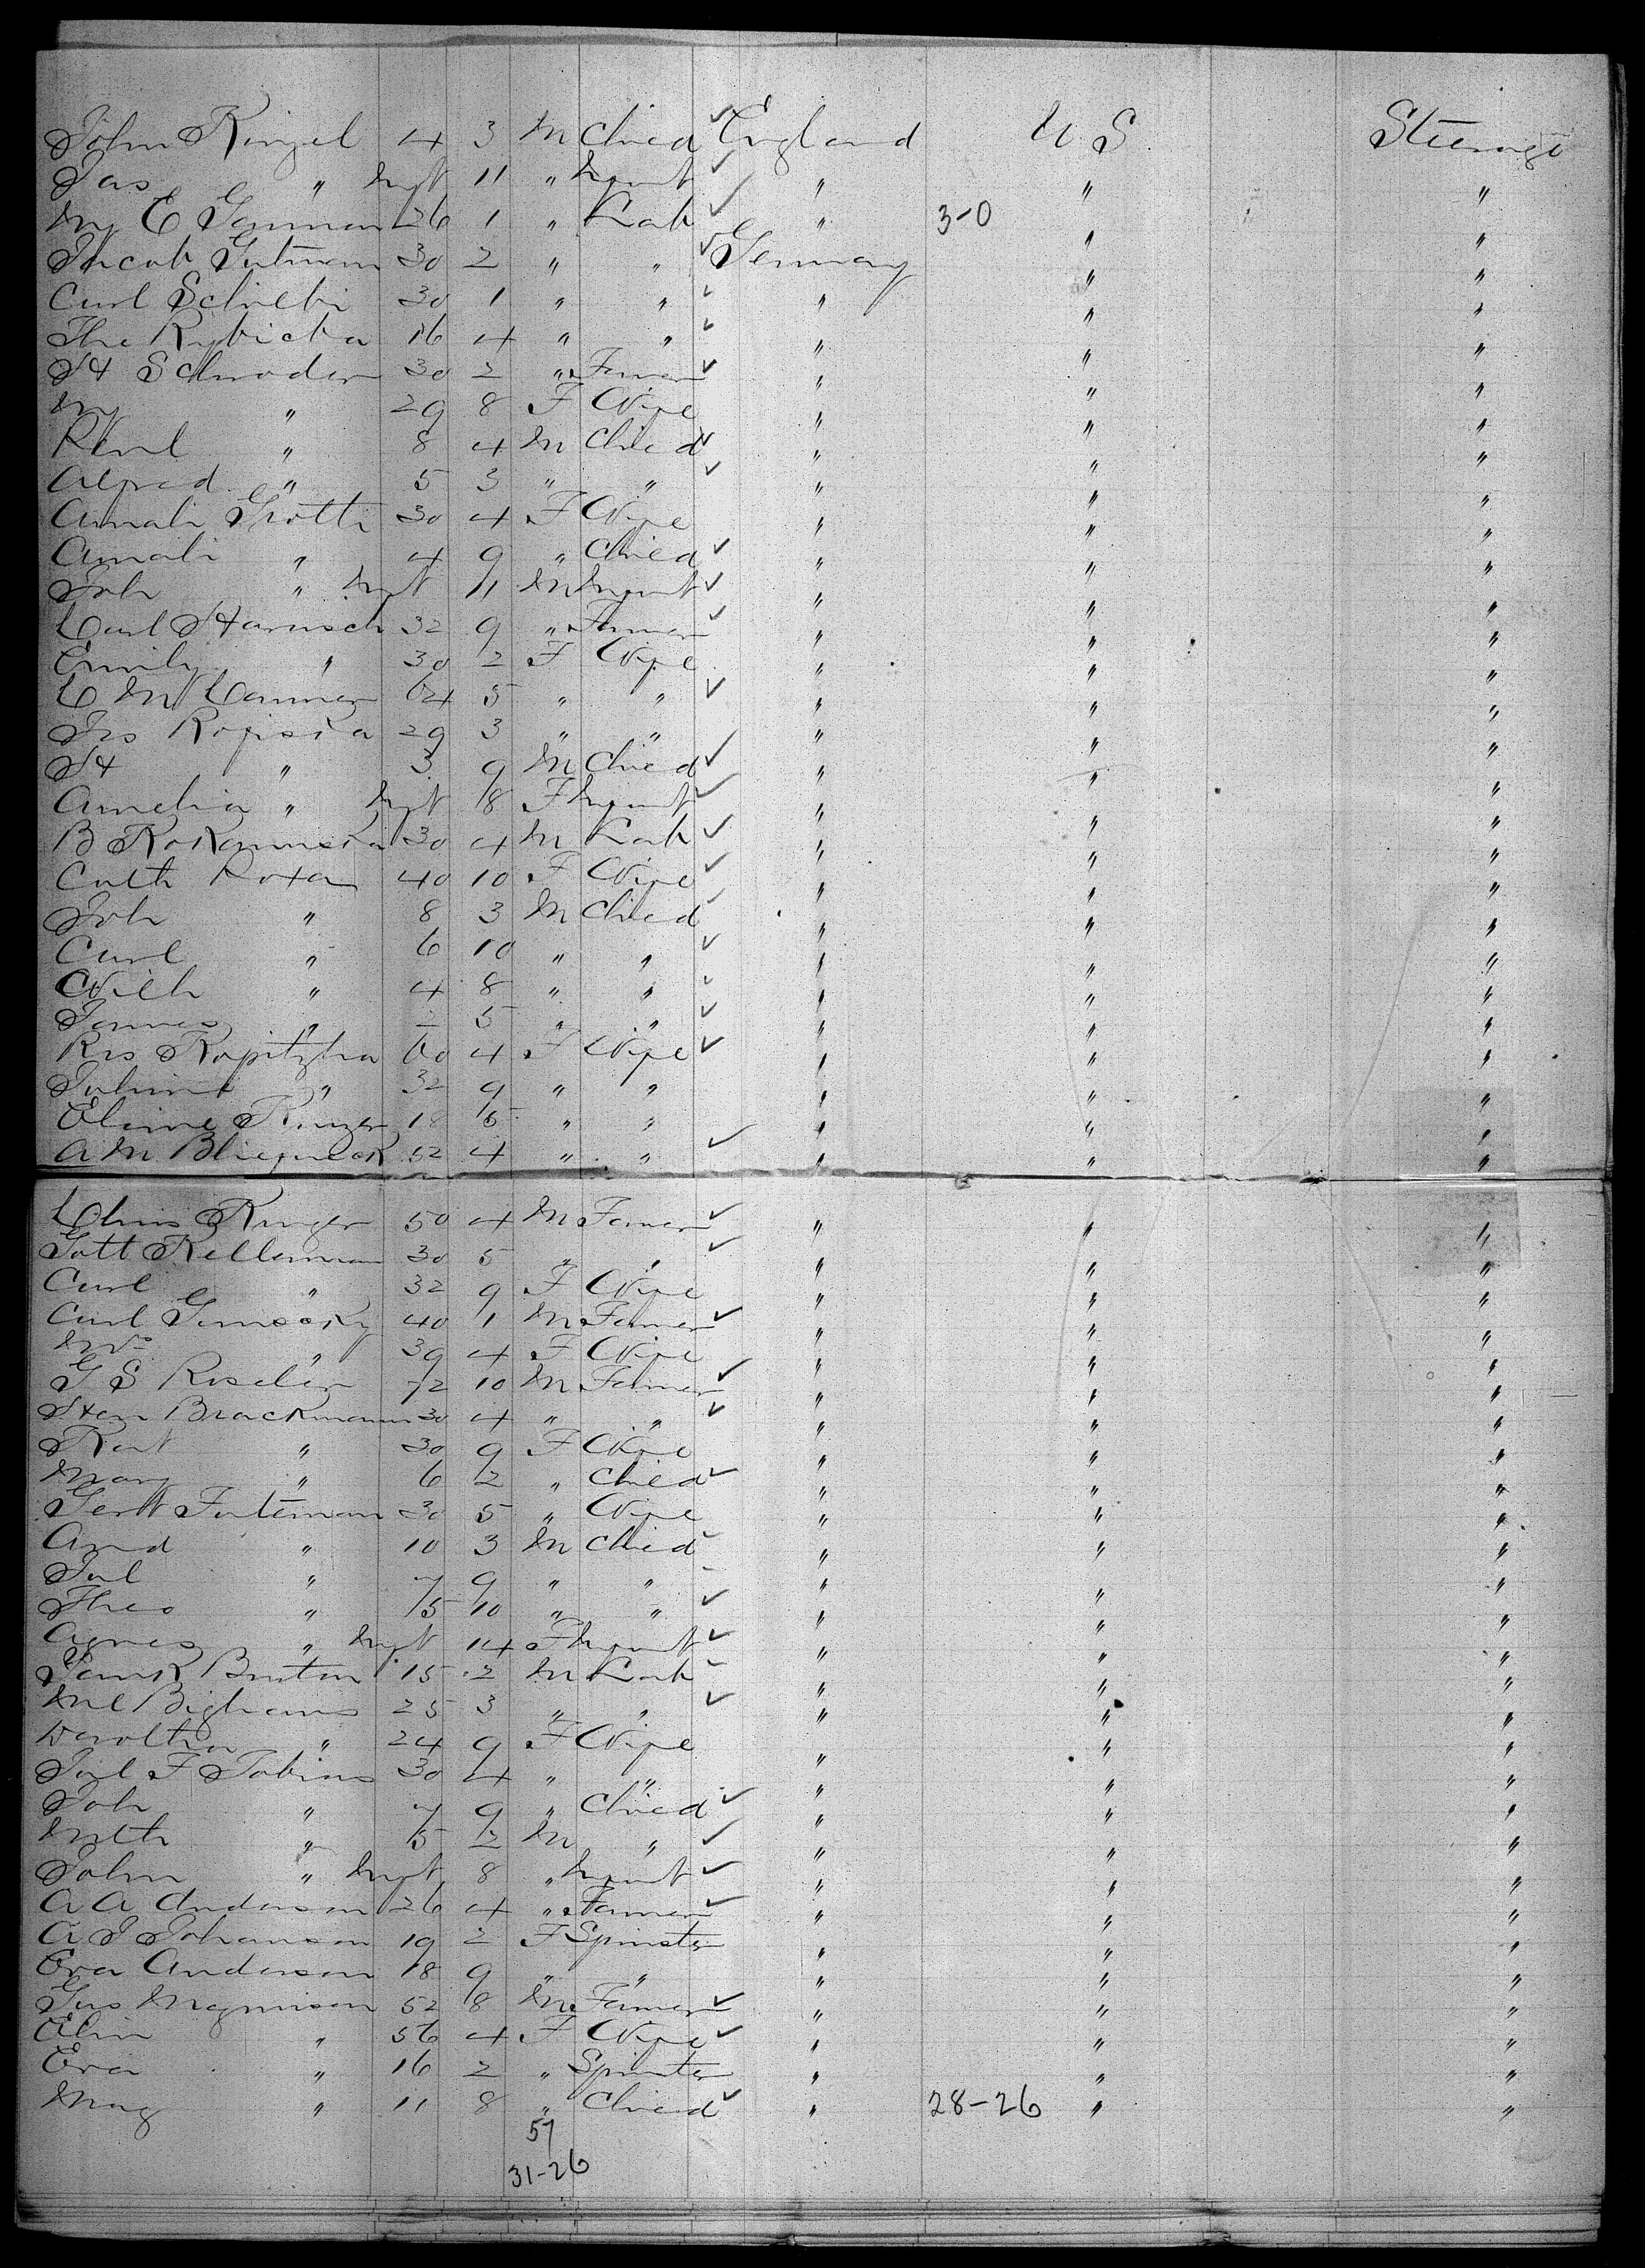 John Kinzel 4 3 M Child ✓ England U S Steerage
Jas " Inft 11 " Infant ✓ " " "
My E Gorman 26 1 " Lab ✓ " 3-0 " "
Jacob Gutman 30 2 " " ✓ Germany " "
Carl Schilbi 30 1 " " ✓ " " "
The Rybicka 16 4 " " ✓ " " "
H Schroder 30 2 " Farmer ✓ " " "
My " 29 8 F Wife " " "
Paul " 8 4 M Child ✓ " " "
Alfred " 5 3 " " ✓ " " "
Amali Grotti 30 4 F Wife " " "
Amali " 4 9 " Child ✓ " " "
Joh " Inft 11 M Infant ✓ " " "
Carl Harnisch 32 9 " Farmer ✓ " " "
Emily " 30 2 F Wife " " "
C M Cammer 64 5 " " ✓ " " "
Frs Kopiska 29 3 " " " " "
H " 3 9 M Child ✓ " " "
Amelia " Inft 8 F Infant ✓ " " "
B Kokanuska 30 4 M Lab ✓ " " "
Cath Roxan 40 10 F Wife ✓ " " "
Joh " 8 3 M Child ✓ " " "
Carl " 6 10 " " ✓ " " "
Wilh " 4 8 " " ✓ " " "
Jannes " 2 5 " " ✓ " " "
Ros Kopitzka 60 4 F Wife ✓ " " "
Juliane " 32 9 " " " " "
Eline Kruger 18 5 " " " " "
A M 52 4 " " ✓ " " "
Chris Kruger 50 4 M Farmer ✓ " " "
Gott Kellerman 30 5 " " ✓ " " "
Carl " 32 9 F Wife " " "
Carl 40 1 M Farmer ✓ " " "
Mrs " 39 4 F Wife " " "
G S Roseler 72 10 M Farmer ✓ " " "
Hen Brackmann 30 4 " " ✓ " " "
Kat " 30 9 F Wife " " "
Mary " 6 2 " Child ✓ " " "
Gert Futeman 30 5 " Wife " " "
And " 10 3 M Child ✓ " " "
Jul " 7 9 " " " " "
Theo " 5 10 " " ✓ " " "
Agnes " Inft 14 F Infant ✓ " " "
Frank Burton 15 2 M Lab ✓ " " "
Bighams 25 3 " " ✓ " " "
Doroltha " 24 9 F Wife " " "
F Tobias 30 4 " " " " "
Joh " 7 9 " Child ✓ " " "
Math " 5 2 M " ✓ " " "
John " Inft 8 " Infant ✓ " " "
A A Anderson 26 4 " Farmer ✓ " " "
A J Johanson 19 2 F Spinster " " "
Eva Anderson 18 9 " " " " "
Gus Magnuson 52 8 M Farmer ✓ " " "
Elin " 56 4 F Wife ✓ " " "
Eva " 16 2 " Spinster " " "
Mag " 11 8 " Child ✓ " 28-26 " "
57
31-26